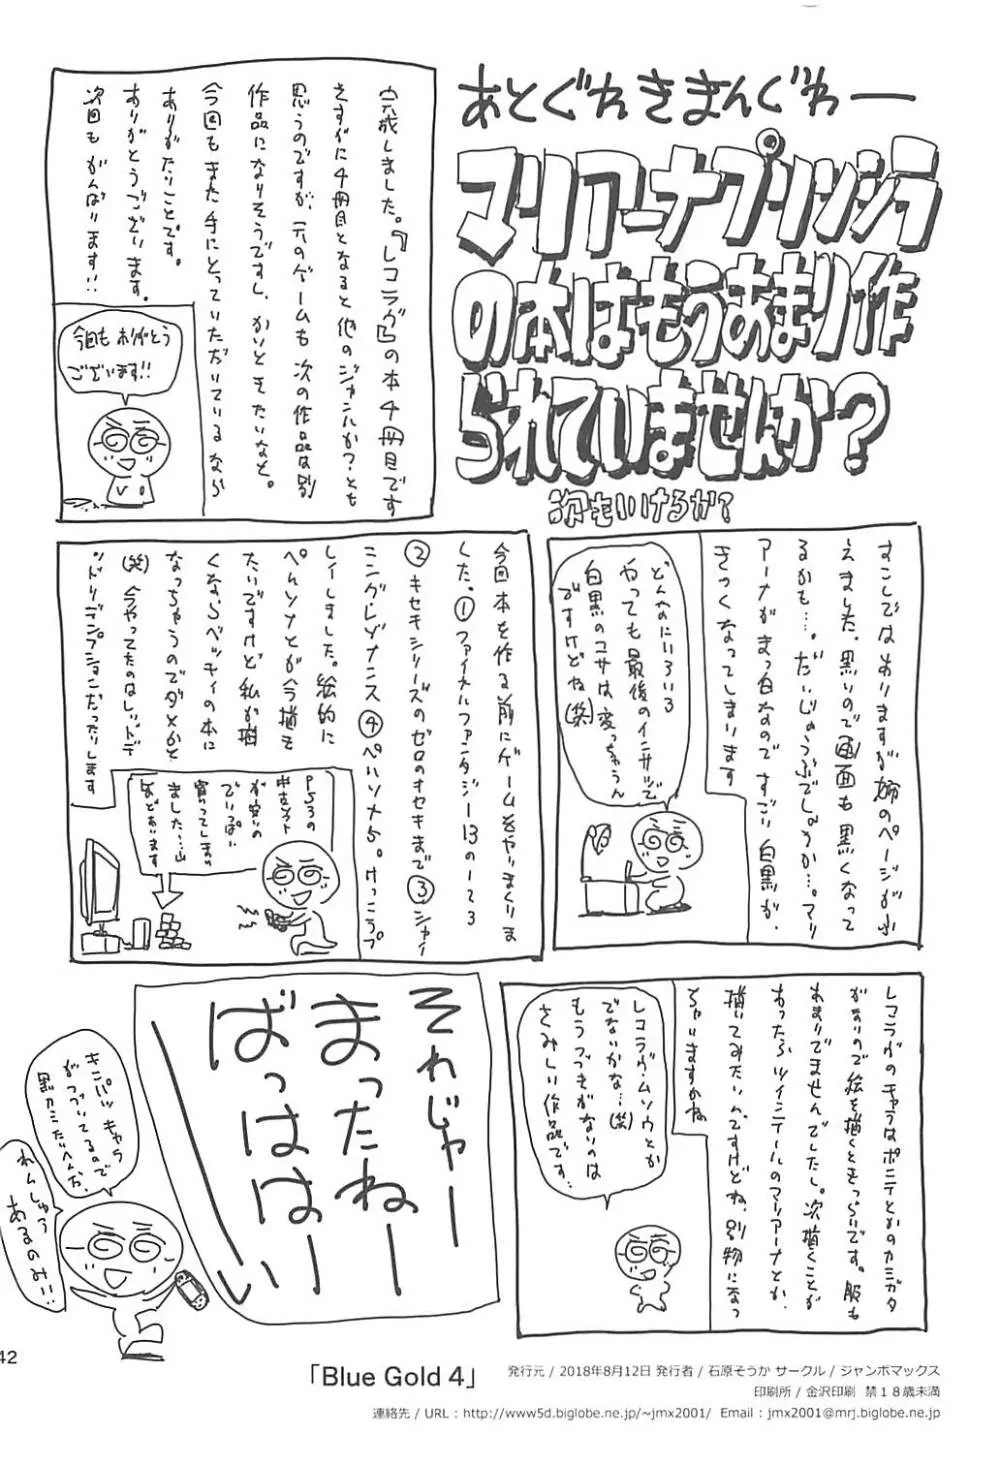 あとぐわきまんぐわー
マリアーナプリンシラ
の本はもうあまり作
られていませんか?
次もいけるか?
完成しました。「レコラヴ」の本4冊目です
さすがに4冊目となると他のジャンルか?とも
思うのですが、元のゲームも次の作品は別
作品になりそうですし、かいときたいなと。
今回もまた手にとっていただいているなら
ありがたいことです。
ありがとうございます。
次回もがんばります!!
今回もありがとう
ございます!!
すこしではありますが姉のページがふ
えました。黒いので画面も黒くなって
るかも…。だいじょうぶでしょうか…。マリ
アーナがまっ白なのですごい白黒が、
きつくなってしまいます
どんなにいろいろ
やっても最後のインサツで
白黒のコサは変っちゃうん
ですけどね(笑)
今回本を作る前にゲームをやりまくりま
した。①ファイナルファンタジー13の1~3
②キセキシリーズのゼロのキセキまで③シャイ
ニングレゾナンス④ペルソナ5。けっこうプ
レイしました。絵的に
ペルソナとが今描き
たいですけど私が描
くならベッキィの本に
なっちゃうのでダメかと
(笑)今やってたのはレッドデ
ッドリデンプションだったりします
PS3の
中古ソフト
が安いの
でいっぱい
買ってしまい
ました…山
ほどあります
レコラヴのキャラはポニテとかのカミガタ
がないので絵を描くときつらいです。服も
あまりでませんでしたし。次描くことが
あったらツインテールのマリアーナとか、
描いてみたいんですけどね、別物になっ
ちゃいますかね
レコラヴ・ムソウとか
でないかな…(笑)
もうつづきがないのは
さみしい作品です…
それじゃー
まったねー
ばっはーい
キンパツキャラ
がつづいてるので
黒カミたいへんだ、
れんしゅう
あるのみ!!
42
「Blue Gold 4」
発行元 / 2018年8月12日 発行者 / 石原そうか サークル / ジャンボマックス
印刷所 / 金沢印刷 禁18歳未満
連絡先 / URL : http://www5d.biglobe.ne.jp/~jmx2001/ Email : jmx2001@mrj.biglobe.ne.jp